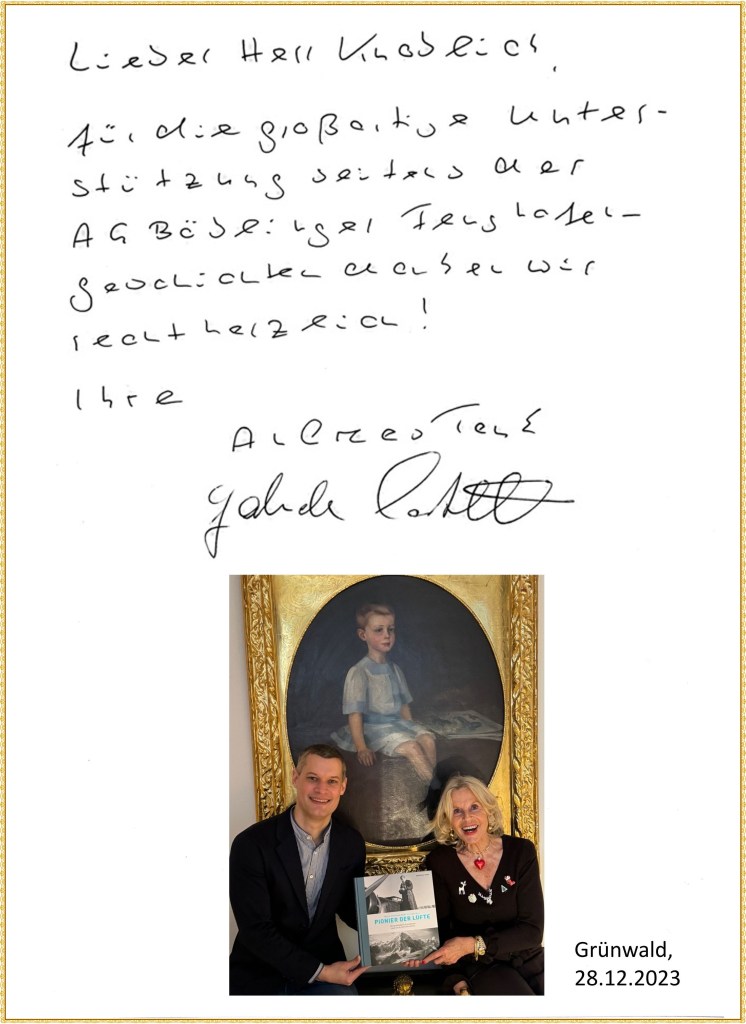 Lieber Herr Knoblich,
für die großartige Unter-
stützung seitens der
AG Böblinger Flughafen-
geschichten danken wir
recht herzlich!
Ihre
Andreas
PIONIER DER LÜFTE
Grünwald,
28.12.2023